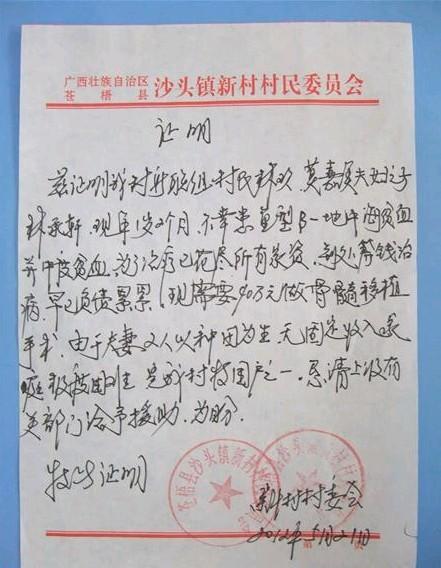 广西壮族自治区
苍梧县
沙头镇新村村民委员会
证明
兹证明我村新联组村民林 莫嘉 夫妇之子
林承轩,现年1岁2个月,不幸患重型β-地中海贫血
并中度贫血,为了治疗已花尽所有家资,到处筹钱治
病,早已负债累累,现需要40万元做骨髓移植
手术,由于夫妻又人以种田为生,无固定收入,家
庭极度困难,是我村特困户之一,恳请上级有
关部门给予援助,为盼。
特此证明
苍梧县沙头镇新村村
新村村委会
2012年5月21日